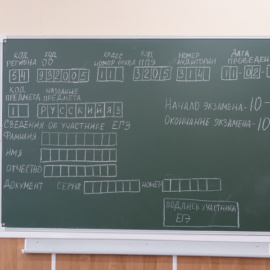 КОД РЕГИОНА КОД ОО КЛАСС НОМЕР БУКВА КОД ППЭ НОМЕР АУДИТОРИИ ДАТА ПРОВЕДЕН
54 932005 11 3205 314 11-02-
КОД ПРЕДМЕТА НАЗВАНИЕ ПРЕДМЕТА
1 РУССКИЙ ЯЗ
НАЧАЛО ЭКЗАМЕНА-10
ОКОНЧАНИЕ ЭКЗАМЕНА-10
СВЕДЕНИЯ ОБ УЧАСТНИКЕ ЕГЭ
ФАМИЛИЯ
ИМЯ
ОТЧЕСТВО
ДОКУМЕНТ СЕРИЯ НОМЕР
ПОДПИСЬ УЧАСТНИКА
ЕГЭ